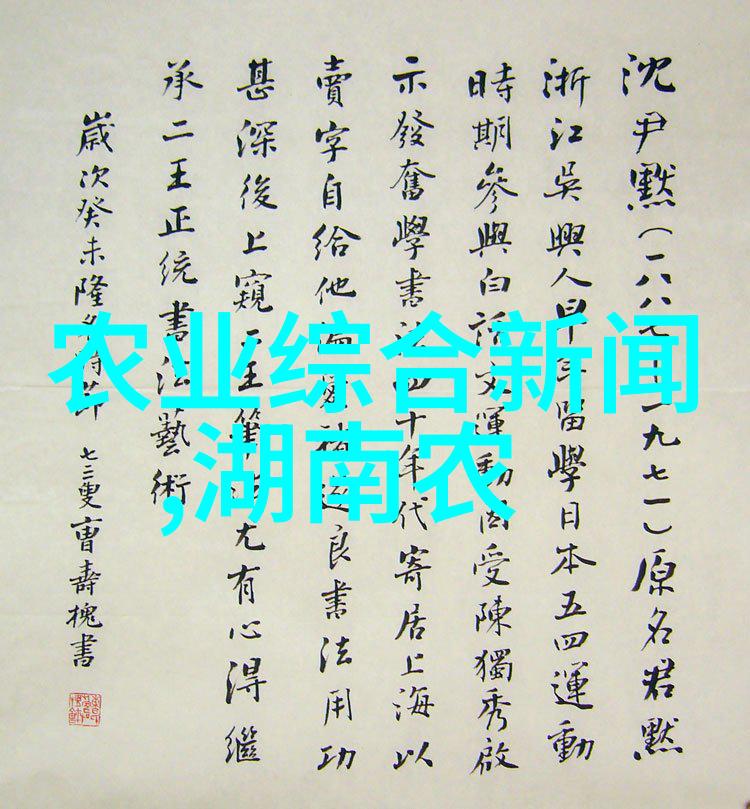 沈尹默（一八八七—一九七一）原名君默
浙江吳興人早年留學日本五四運動
時期參與白話文運動因受陳獨秀啟
示發奮學書法四十年代寄居上海以
賣字自給他褚遂良書法用功
甚深後上窺二王筆法尤有心得繼
承二王正统書法藝術
歲次癸未隆冬時節 七三叟曹壽槐書
农业综合新闻
,湖南农